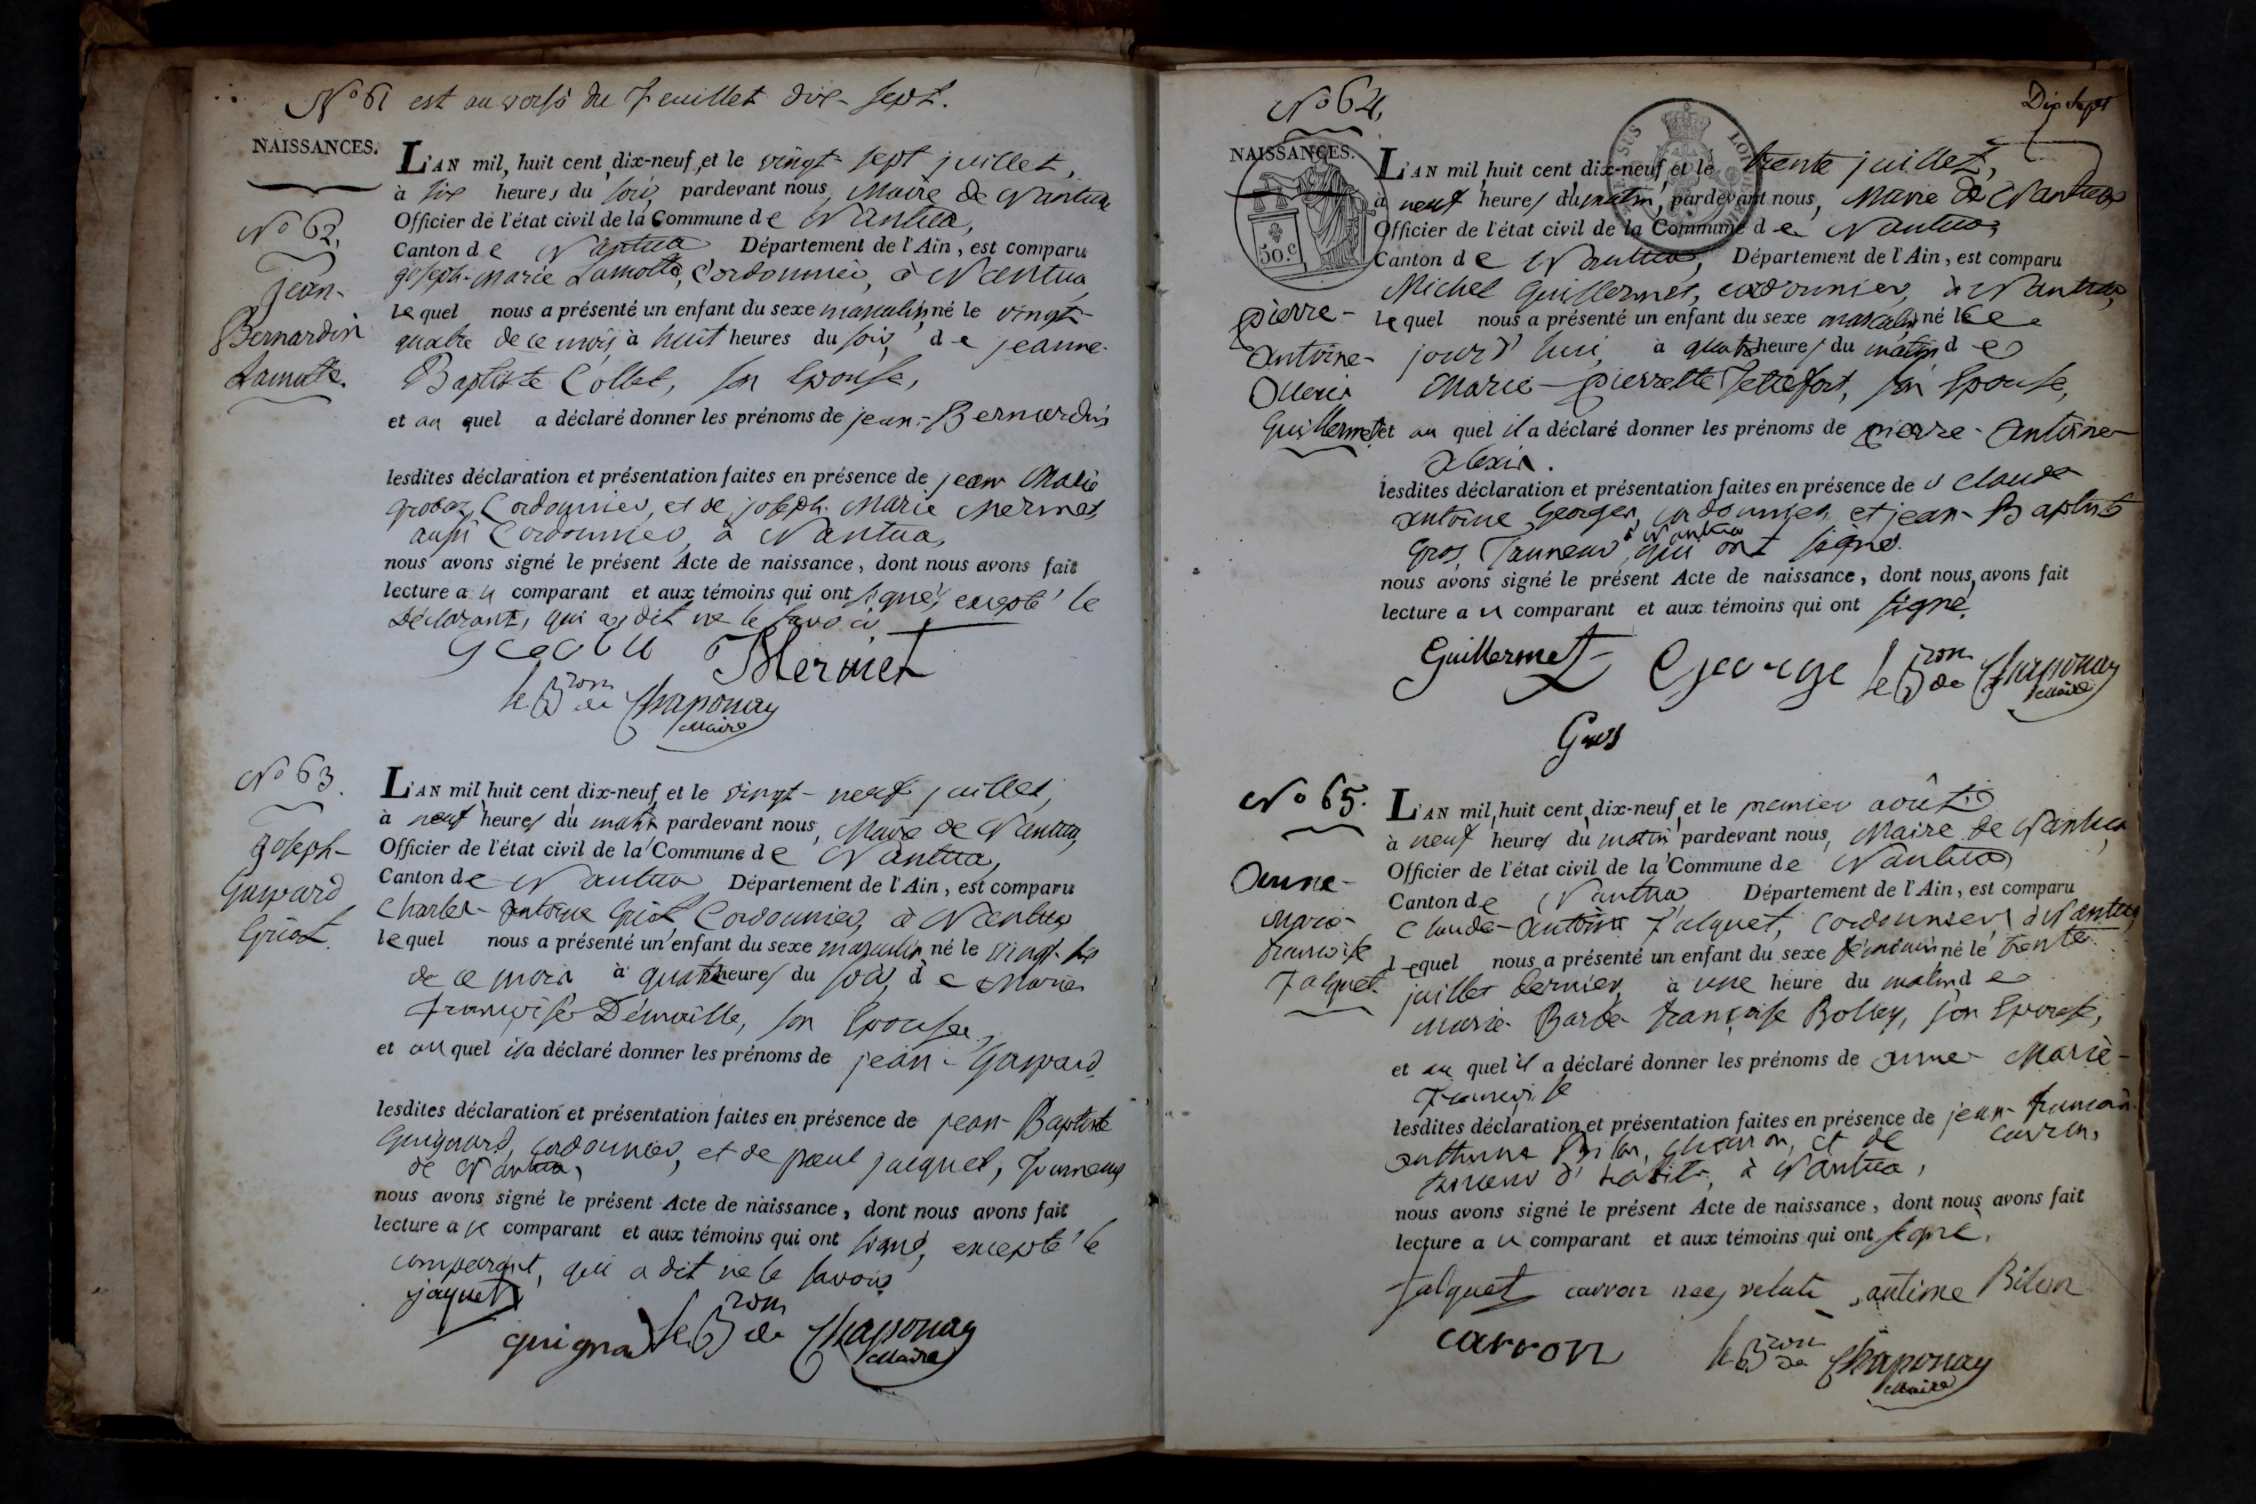 No 61 est au verso du feuillet dix-sept.
NAISSANCES.
No 62,
Jean-
Bernardin
Lamotte.
L'AN mil, huit cent dix-neuf, et le vingt-sept juillet,
à six heures du soir, pardevant nous, Maire de Nantua
Officier de l'état civil de la Commune de Nantua,
Canton de Nantua Département de l'Ain, est comparu
joseph-marie Lamotte, Cordonnier, à Nantua
lequel nous a présenté un enfant du sexe masculin, né le vingt-
quatre de ce mois à huit heures du soir, de jeanne-
Baptiste Collet, son Epouse,
et au quel a déclaré donner les prénoms de jean-Bernardin
lesdites déclaration et présentation faites en présence de jean Marie
Cordonnier, et de joseph Marie Mermet,
aussi Cordonnier, à Nantua,
nous avons signé le présent Acte de naissance, dont nous avons fait
lecture au comparant et aux témoins qui ont signé, excepté le
Déclarant, qui a dit ne le savoir
Mermet
le Bron de Chaponay
Maire
No 63.
joseph-
Gaspard
Griot.
L'AN mil huit cent dix-neuf, et le vingt-neuf juillet,
à neuf heures du matin pardevant nous, Maire de Nantua,
Officier de l'état civil de la Commune de Nantua,
Canton de Nantua Département de l'Ain, est comparu
Charles-antoine Griot, Cordonnier, à Nantua
lequel nous a présenté un enfant du sexe masculin né le vingt-
de ce mois à quatre heures du soir, de Marie
françoise son Epouse,
et au quel il a déclaré donner les prénoms de jean-Gaspard
lesdites déclaration et présentation faites en présence de jean-Baptiste
Guignard, cordonnier, et de paul jacquet,
de Nantua,
nous avons signé le présent Acte de naissance, dont nous avons fait
lecture au comparant et aux témoins qui ont signé, excepté le
comparant, qui a dit ne le savoir
jaquet
guignar le Bron de Chaponay
Maire
Dix sept
No 64,
NAISSANCES.
50 c
pierre-
antoine-
Alexis
Guillermet
L'AN mil huit cent dix-neuf, et le trente juillet,
à neuf heures du matin, pardevant nous, Maire de Nantua
Officier de l'état civil de la Commune de Nantua,
Canton de Nantua, Département de l'Ain, est comparu
Michel Guillermet, cordonnier, à Nantua,
lequel nous a présenté un enfant du sexe masculin, né le ce
jourd'hui, à quatre heures du matin de
Marie-pierrette son Epouse,
et au quel il a déclaré donner les prénoms de pierre-antoine-
alexis.
lesdites déclaration et présentation faites en présence de claude
antoine George, cordonnier, et jean-Baptiste
Gros, Tanneur, à Nantua qui ont signé.
nous avons signé le présent Acte de naissance, dont nous avons fait
lecture au comparant et aux témoins qui ont signé.
Guillermet George le Bron de Chaponay
Maire
Gros
No 65.
Anne-
Marie-
françoise
Jalquet
L'AN mil huit cent dix-neuf, et le premier août
à neuf heures du matin pardevant nous, Maire de Nantua,
Officier de l'état civil de la Commune de Nantua,
Canton de Nantua, Département de l'Ain, est comparu
Claude-antoine Jalquet, cordonnier, à Nantua,
lequel nous a présenté un enfant du sexe féminin né le trente
juillet dernier, à une heure du matin de
marie Barbe françoise son Epouse,
et au quel il a déclaré donner les prénoms de anne-Marie-
françoise
lesdites déclaration et présentation faites en présence de jean-françois
charron, et de carron,
d'habits, à Nantua,
nous avons signé le présent Acte de naissance, dont nous avons fait
lecture au comparant et aux témoins qui ont signé.
Jalquet carron antime Bilon
carron le Bron de Chaponay
Maire